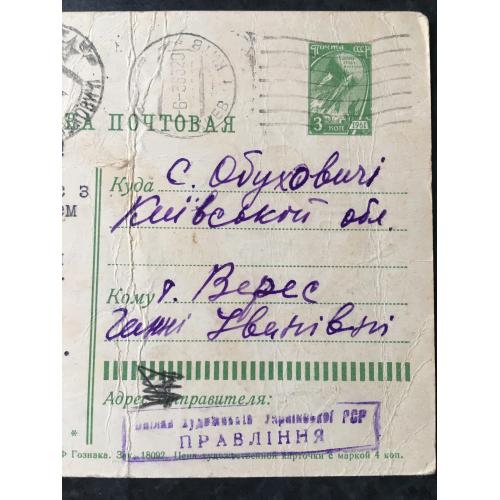 ПОЧТА СССР
3 КОП
1961
КА ПОЧТОВАЯ
с з
ем
Куда с. Обуховичі
Київської обл.
Кому т. Верес
Ганні Іванівні
Адрес отправителя:
Спілка художників Української РСР
ПРАВЛІННЯ
* Ф Гознака. Зак. 18092. Цена художественной карточки с маркой 4 коп.